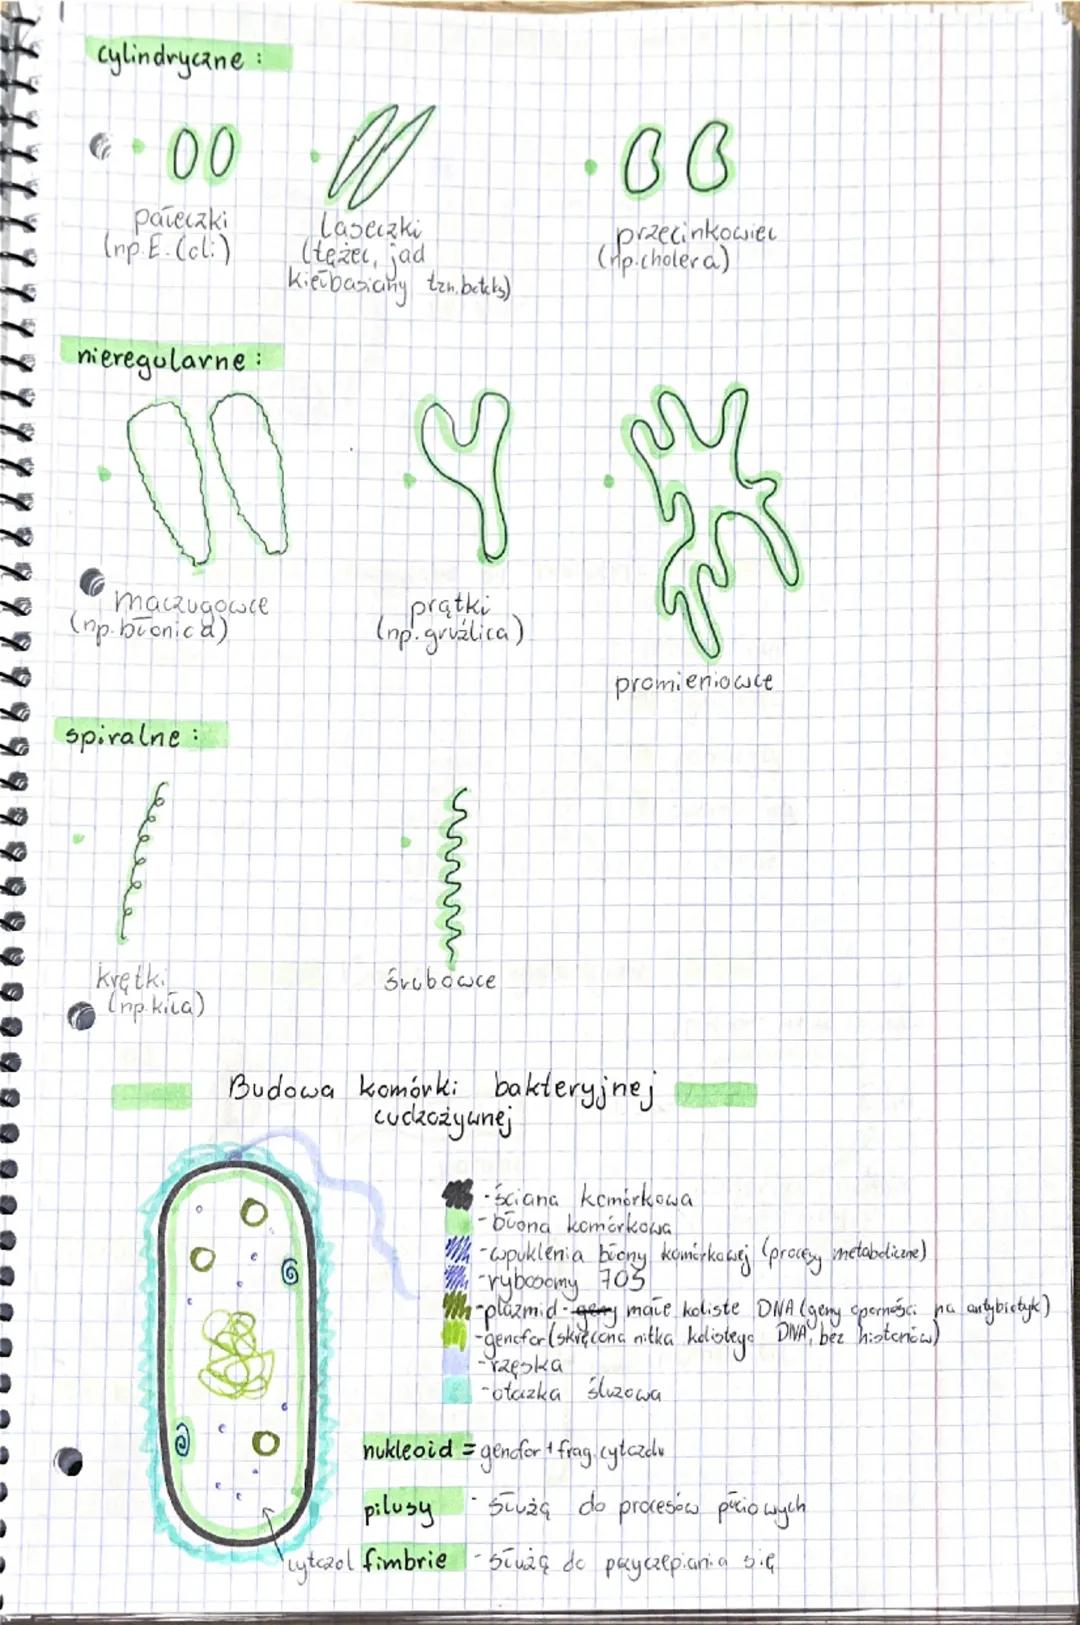 cylindryczne :
pałeczki
(np. E. Coli)
laseczki
(tężec, jad
kiełbasiany tzn. botoks)
przecinkowiec
(np. cholera)
nieregularne :
maczugowce
(np. błonica)
prątki
(np. gruźlica)
promieniowce
spiralne :
krętki
(np. kiła)
śrubowce
Budowa komórki bakteryjnej
cudzożywnej
- ściana komórkowa
- błona komórkowa
- wpuklenia błony komórkowej (procesy metaboliczne)
- rybosomy 70S
- plazmid - geny małe koliste DNA (geny oporności na antybiotyk)
- genofor (skręcona nitka kolistego DNA, bez histonów)
- rzęska
- otoczka śluzowa
nukleoid = genofor + frag. cytozolu
pilusy - służą do procesów płciowych
cytozol
fimbrie - służą do przyczepiania się